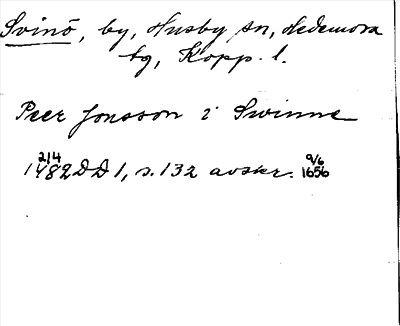 Svinö, by, Husby sn, Hedemora
tg, Kopp. l.
Peer Jonsson i Swinne
2/4 1482 DD 1, s. 132 avskr. 9/6 1656